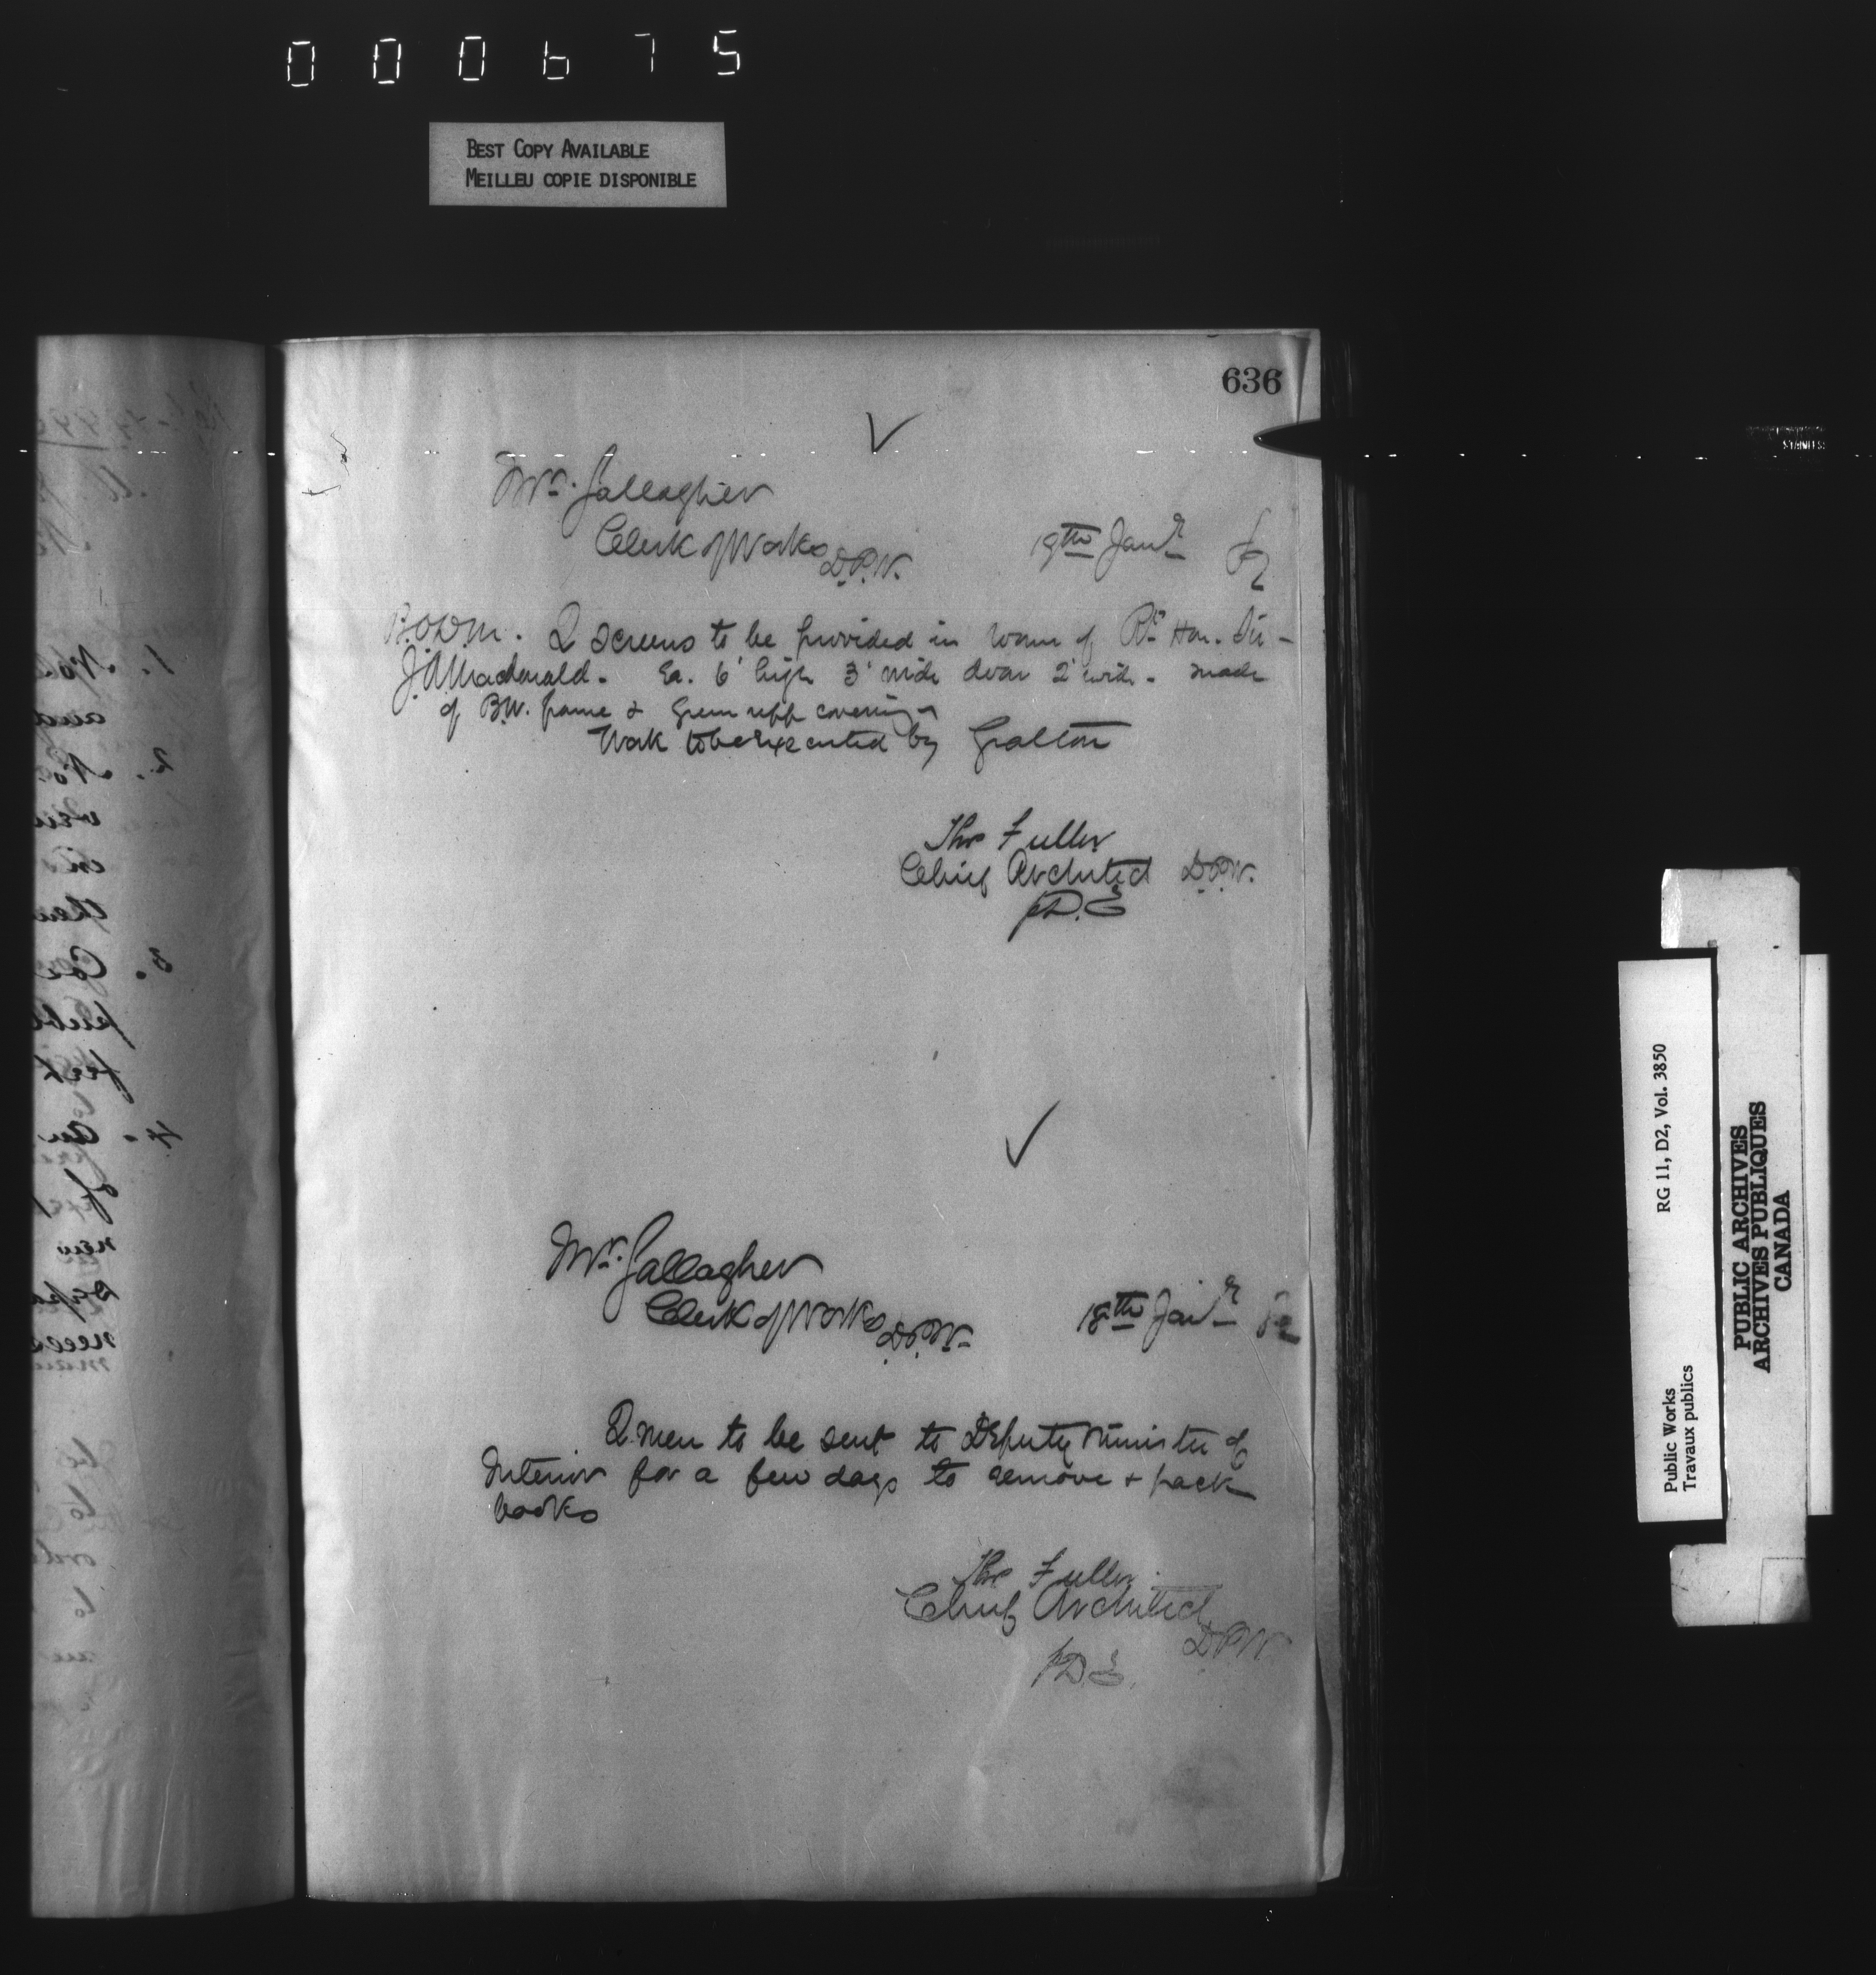 000675
BEST COPY AVAILABLE
MEILLEU COPIE DISPONIBLE
636
Mr. Gallagher
Clerk of Works D.P.W.
19th Janr
2 screens to be provided in room of Rt Hon. Sir
J.A. Macdonald. Ea. 6' high 3' wide door 2' wide. made
of B.W. frame & Green repp covering
Work to be executed by Gratton
Thos Fuller
Chief Architect D.P.W.
p D.E
Mr. Gallagher
Clerk of Works D.P.W.
18th Janr
2 men to be sent to Deputy Minister of
Interior for a few days to remove + pack
books
Thos Fuller
Chief Architect
D.P.W
p D.E.
Public Works
Travaux publics
RG 11, D2, Vol. 3850
PUBLIC ARCHIVES
ARCHIVES PUBLIQUES
CANADA